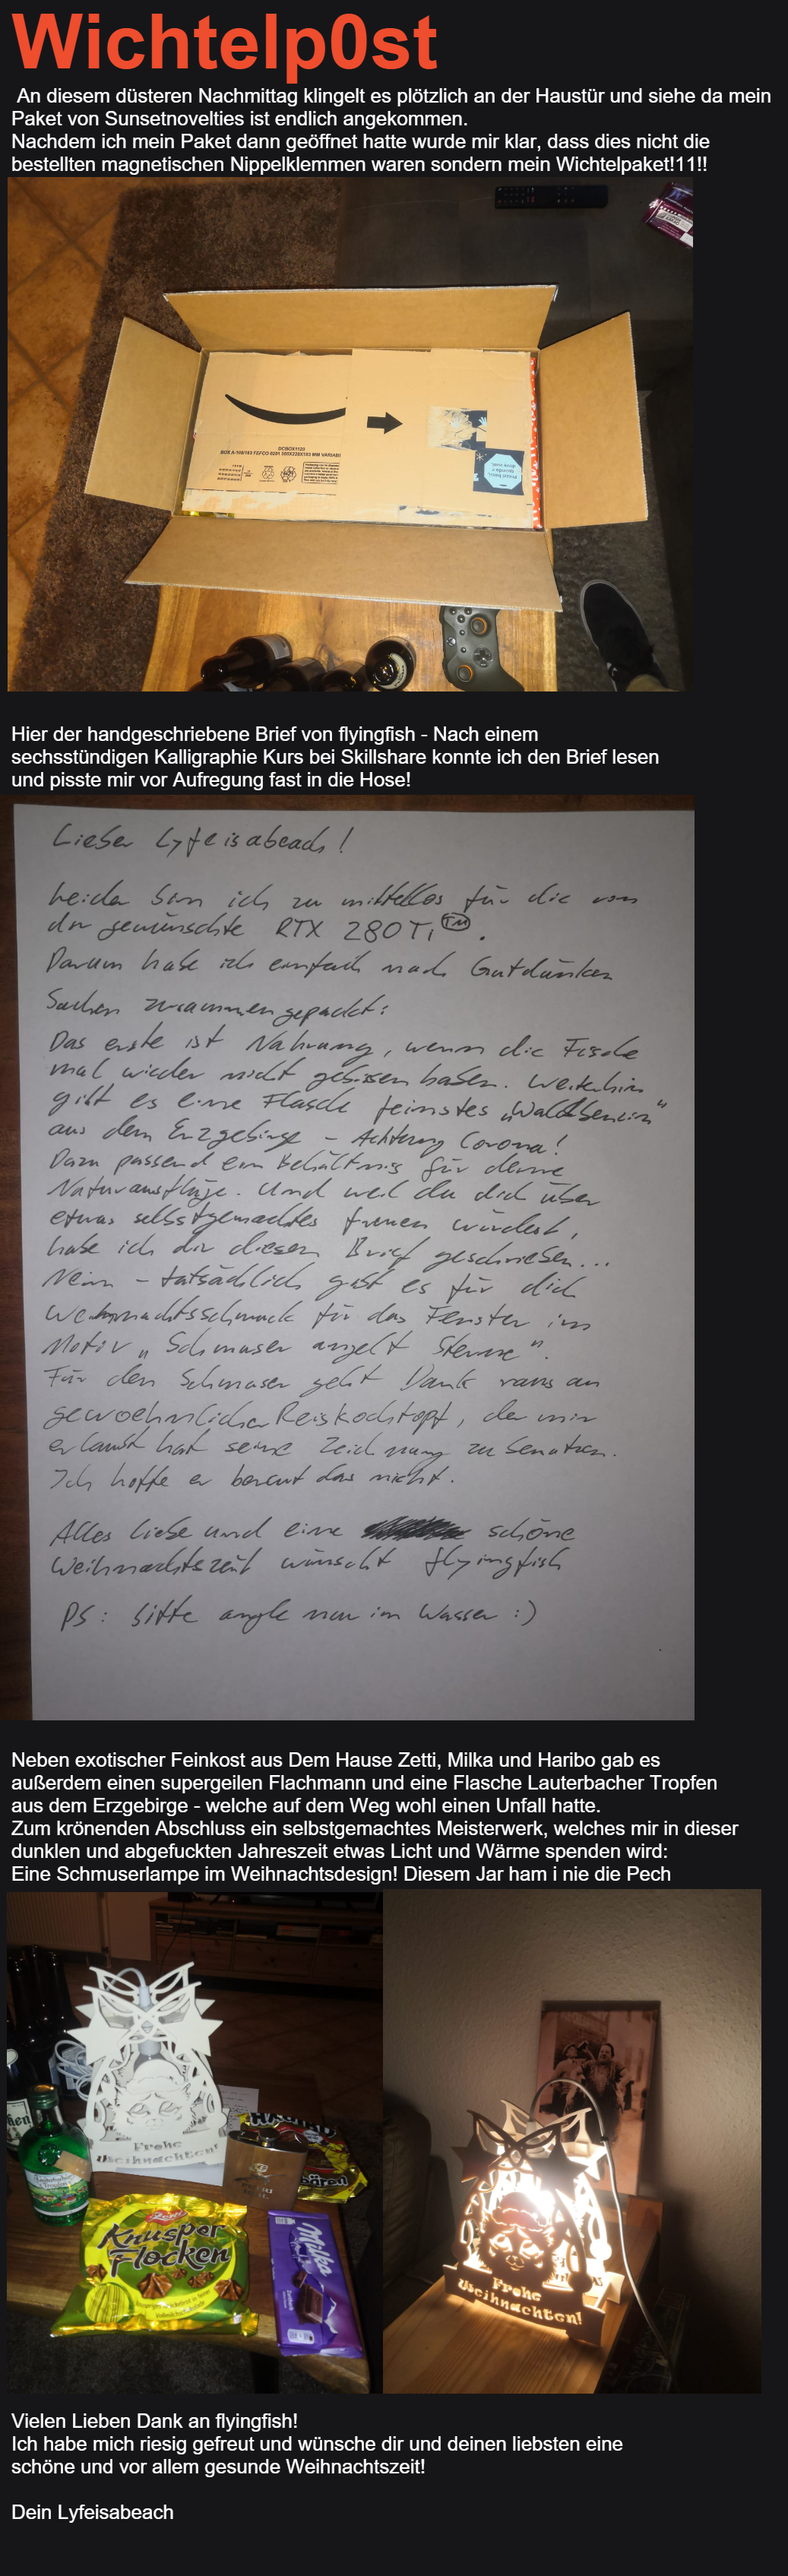 Wichtelp0st
An diesem düsteren Nachmittag klingelt es plötzlich an der Haustür und siehe da mein
Paket von Sunsetnovelties ist endlich angekommen.
Nachdem ich mein Paket dann geöffnet hatte wurde mir klar, dass dies nicht die
bestellten magnetischen Nippelklemmen waren sondern mein Wichtelpaket!11!!
Hier der handgeschriebene Brief von flyingfish - Nach einem
sechsstündigen Kalligraphie Kurs bei Skillshare konnte ich den Brief lesen
und pisste mir vor Aufregung fast in die Hose!
Lieber Lyfeisabeach!
Leider bin ich zu mittellos für die von
dir gewünschte RTX 280Ti TM.
Darum habe ich einfach nach Gutdünken
Sachen zusammengepackt:
Das erste ist Nahrung, wenn die Fische
mal wieder nicht gebissen haben. Weiterhin
gibt es eine Flasche feinstes „Waldbenzin“
aus dem Erzgebirge - Achtung Corona!
Dazu passend ein Behältnis für deine
Naturausflüge. Und weil du dich über
etwas selbstgemachtes freuen würdest,
habe ich dir diesen Brief geschrieben...
Nein - tatsächlich gibt es für dich
Weihnachtsschmuck für das Fenster im
Motiv „Schmuser angelt Sterne“.
Für den Schmuser geht Dank raus an
gewoehnlicher Reiskochtopf, der mir
erlaubt hat seine Zeichnung zu benutzen.
Ich hoffe er bereut das nicht.
Alles liebe und eine schöne
Weihnachtszeit wünscht flyingfish
PS: bitte angle nur im Wasser :)
Neben exotischer Feinkost aus Dem Hause Zetti, Milka und Haribo gab es
außerdem einen supergeilen Flachmann und eine Flasche Lauterbacher Tropfen
aus dem Erzgebirge - welche auf dem Weg wohl einen Unfall hatte.
Zum krönenden Abschluss ein selbstgemachtes Meisterwerk, welches mir in dieser
dunklen und abgefuckten Jahreszeit etwas Licht und Wärme spenden wird:
Eine Schmuserlampe im Weihnachtsdesign! Diesem Jar ham i nie die Pech
Frohe
Weihnachten!
bären
Zetti
Knusper
Flocken
Milka
Frohe
Weihnachten!
Vielen Lieben Dank an flyingfish!
Ich habe mich riesig gefreut und wünsche dir und deinen liebsten eine
schöne und vor allem gesunde Weihnachtszeit!
Dein Lyfeisabeach